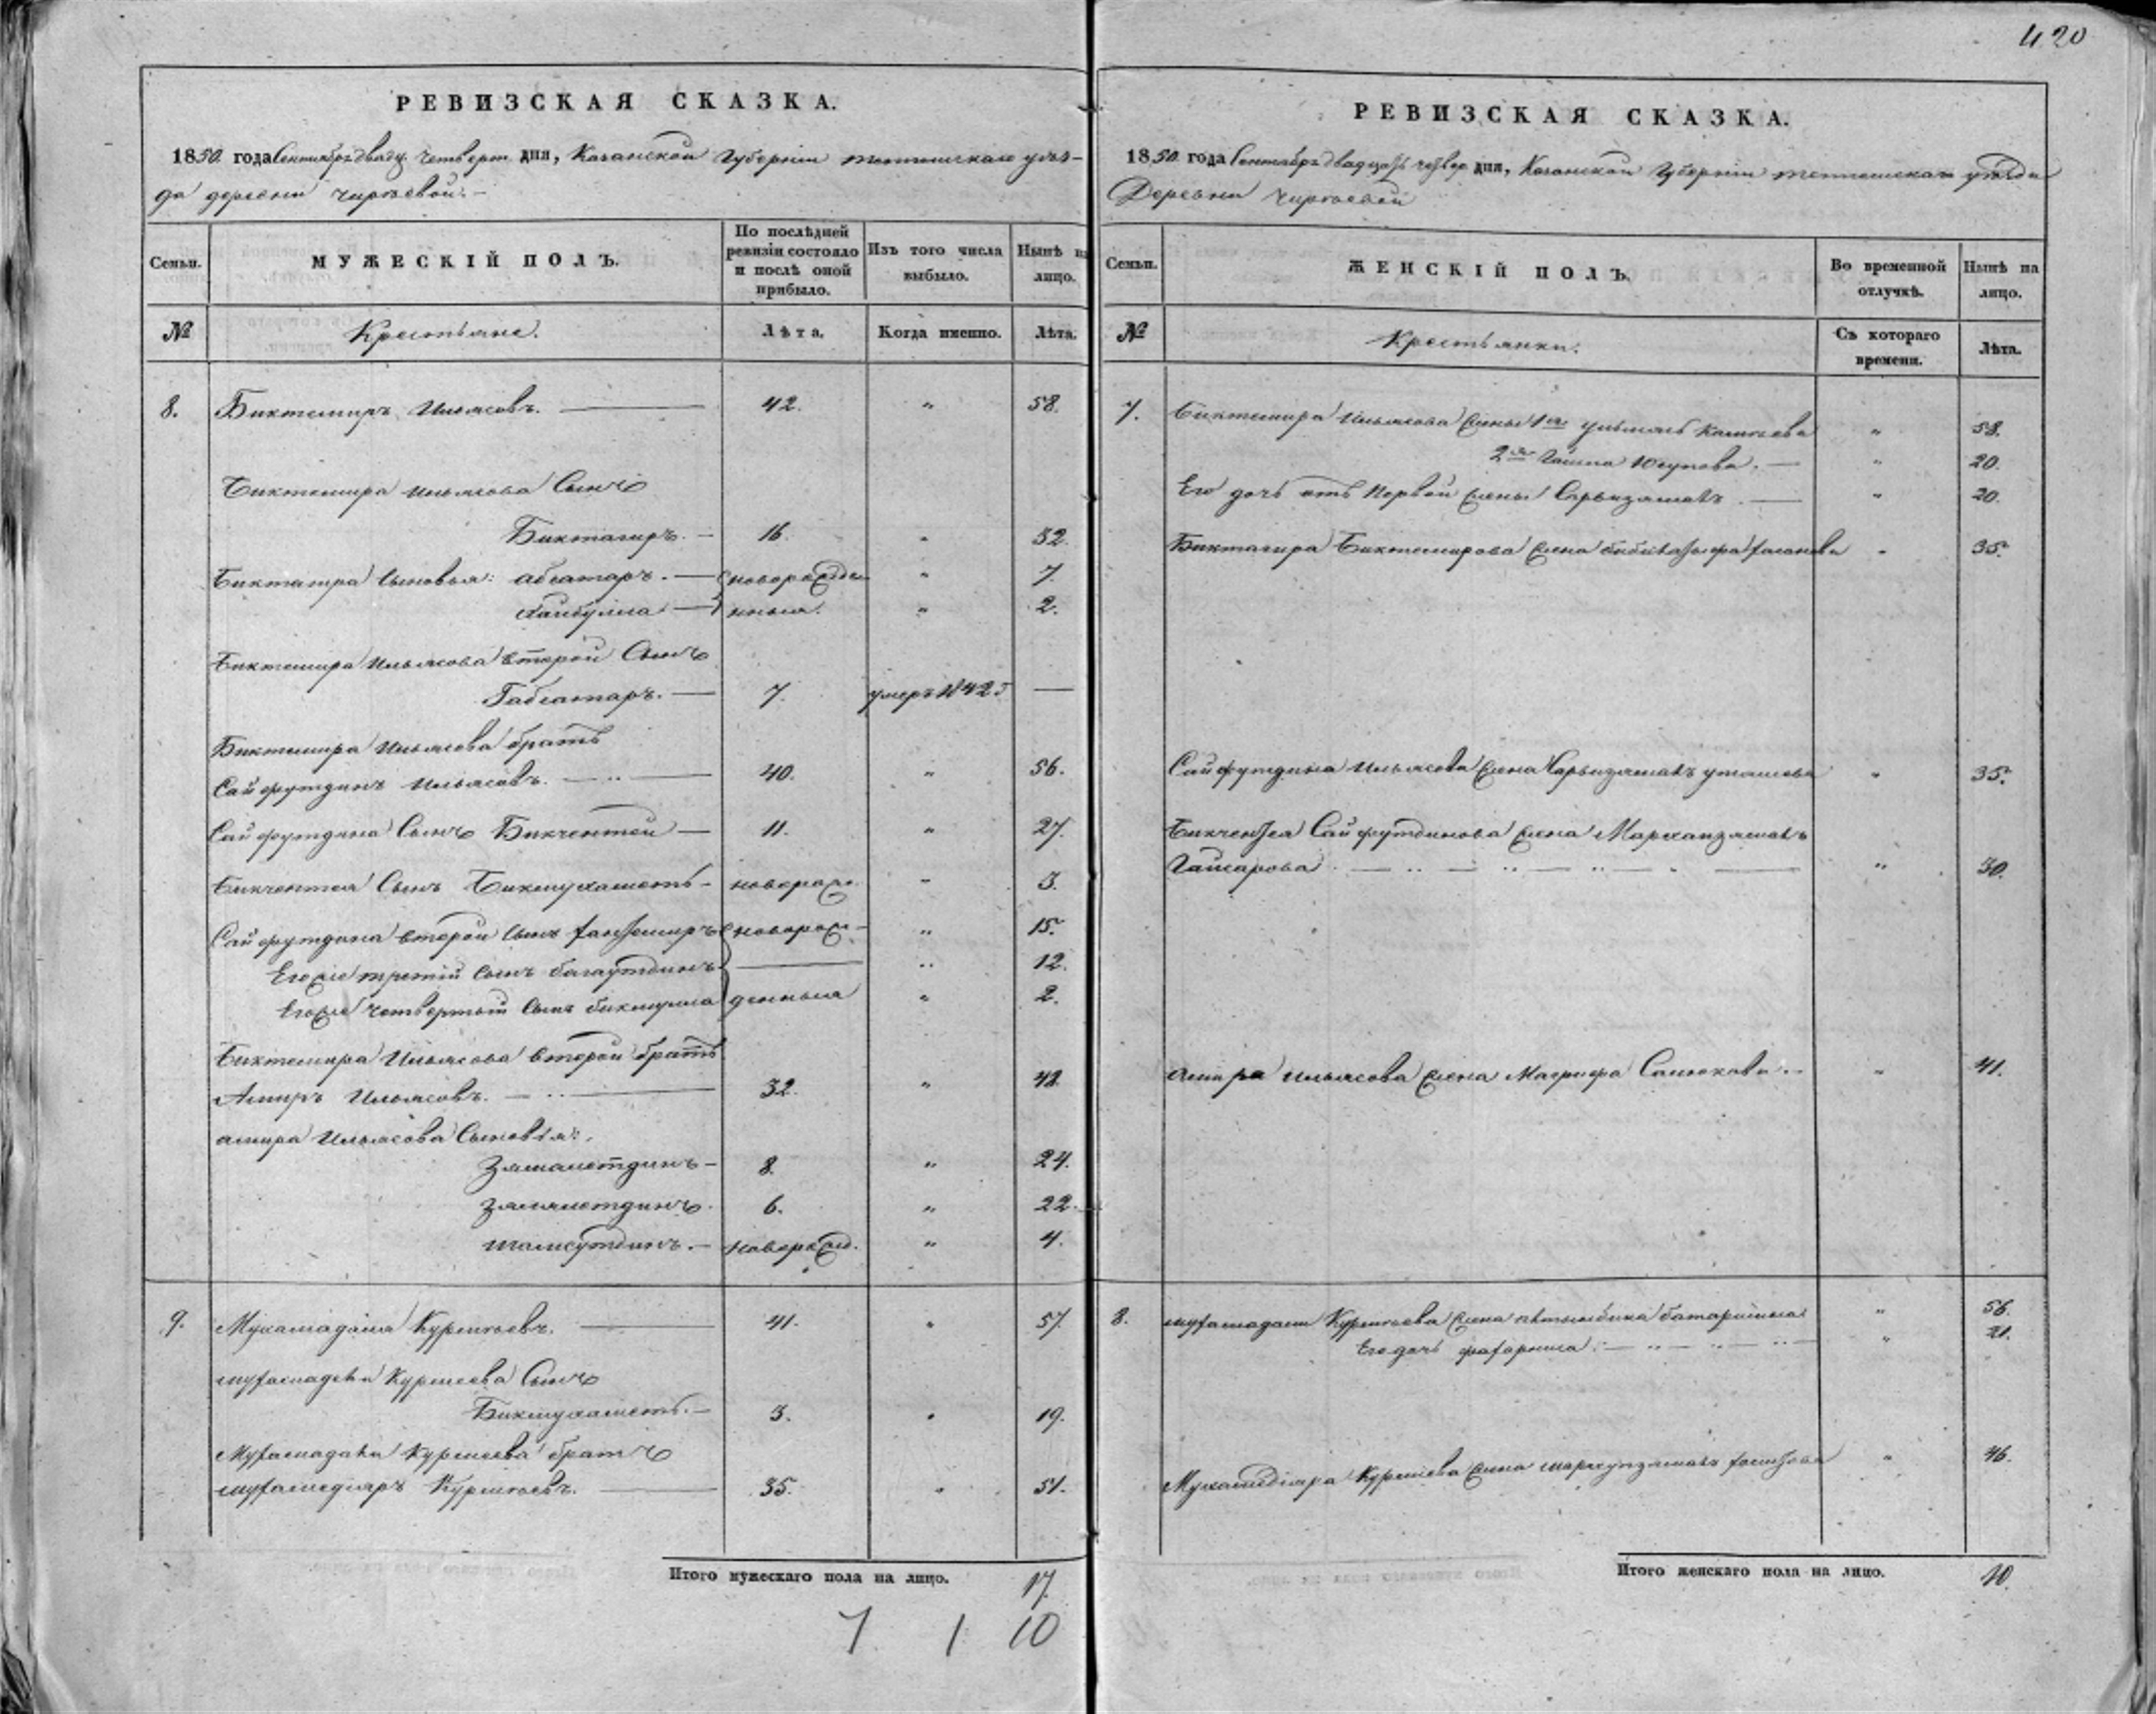 420
РЕВИЗСКАЯ СКАЗКА.
1850. года Сентября двадц. четверт. дня, Казанской Губернии тетюшскаго уез-
да деревни Чирѣевой.
Семьи.
МУЖЕСКІЙ ПОЛЪ.
По послѣдней ревизіи состояло и послѣ оной прибыло.
Изъ того числа выбыло.
Нынѣ на лицо.
№
Крестьяне.
Лѣта.
Когда именно.
Лѣта.
8. Биктемиръ Ильясовъ. — 42. „ 58.
Биктемира Ильясова Сынъ
Биктагиръ. — 16. „ 32.
Биктагира Сыновья: абсатаръ. — новорожде „ 7.
— нныя. „ 2.
Биктемира Ильясова второй Сынъ
Габсатаръ. — 7. умеръ 1842 —
Биктемира Ильясова братъ
Сайфутдинъ Ильясовъ. — 40. „ 56.
Сайфутдина Сынъ Бикчентей — 11. „ 27.
Бикчентея Сынъ Бикмухаметъ — новорож. „ 3.
Сайфутдина второй Сынъ новорож- „ 15.
Егоже третій сынъ багаутдинъ — „ 12.
Егоже четвертый Сынъ денныя „ 2.
Биктемира Ильясова второй братъ
Амиръ Ильясовъ. — 32. „ 48.
амира Ильясова Сыновья:
Замалетдинъ — 8. „ 24.
Залялетдинъ. 6. „ 22.
шамсутдинъ. — новорожд. „ 4.
9. Мухамадгали Курмѣевъ. — 41. „ 57.
Курмеева Сынъ
Бикмухаметъ. — 3. „ 19.
Курмеева братъ
мухамедияръ Курмѣевъ. — 35. „ 51.
Итого мужескаго пола на лицо. 17.
7 1 10
РЕВИЗСКАЯ СКАЗКА.
1850. года Сентября двадцать четвер дня, Казанской Губерніи тетюшскаго уѣзда
Деревни Чирѣевой
Семьи.
ЖЕНСКІЙ ПОЛЪ.
Во временной отлучкѣ.
Нынѣ на лицо.
№
Крестьянки.
Съ котораго времени.
Лѣта.
7. Биктемира Ильясова жены 1я „ 58.
2я Юсупова. — „ 20.
Его дочь отъ Первой жены — „ 20.
Биктагира Биктемирова жена „ 35.
Сайфутдина Ильясова жена „ 35.
Бикчентея Сайфутдинова жена
„ 30.
амира Ильясова жена Магрифа „ 41.
8. Курмѣева жена „ 56.
Его дочь „ 21.
Мухамедіяра Курмеева жена „ 46.
Итого женскаго пола на лицо. 10.